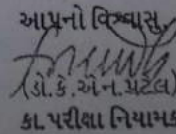 આપનો વિશ્વાસુ,
(ડો.કે.એન.પટેલ)
કા.પરીક્ષા નિયામક